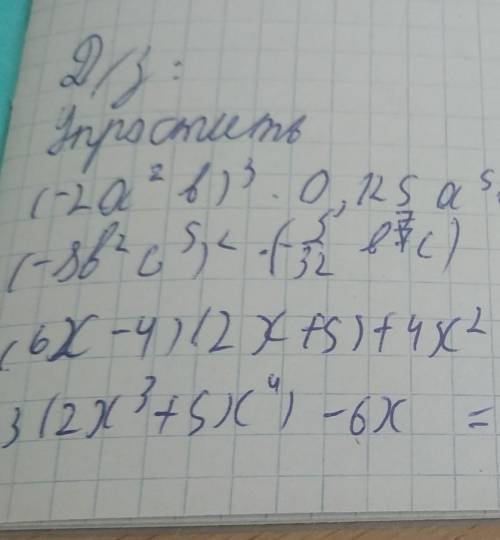 Д/з:
Упростить
(-2a² b)³ · 0,125 a⁵
(-8b² c⁵)² · (-5/32 b⁷ c)
(6x-4)(2x+5)+4x²
3(2x³+5x⁴) - 6x =